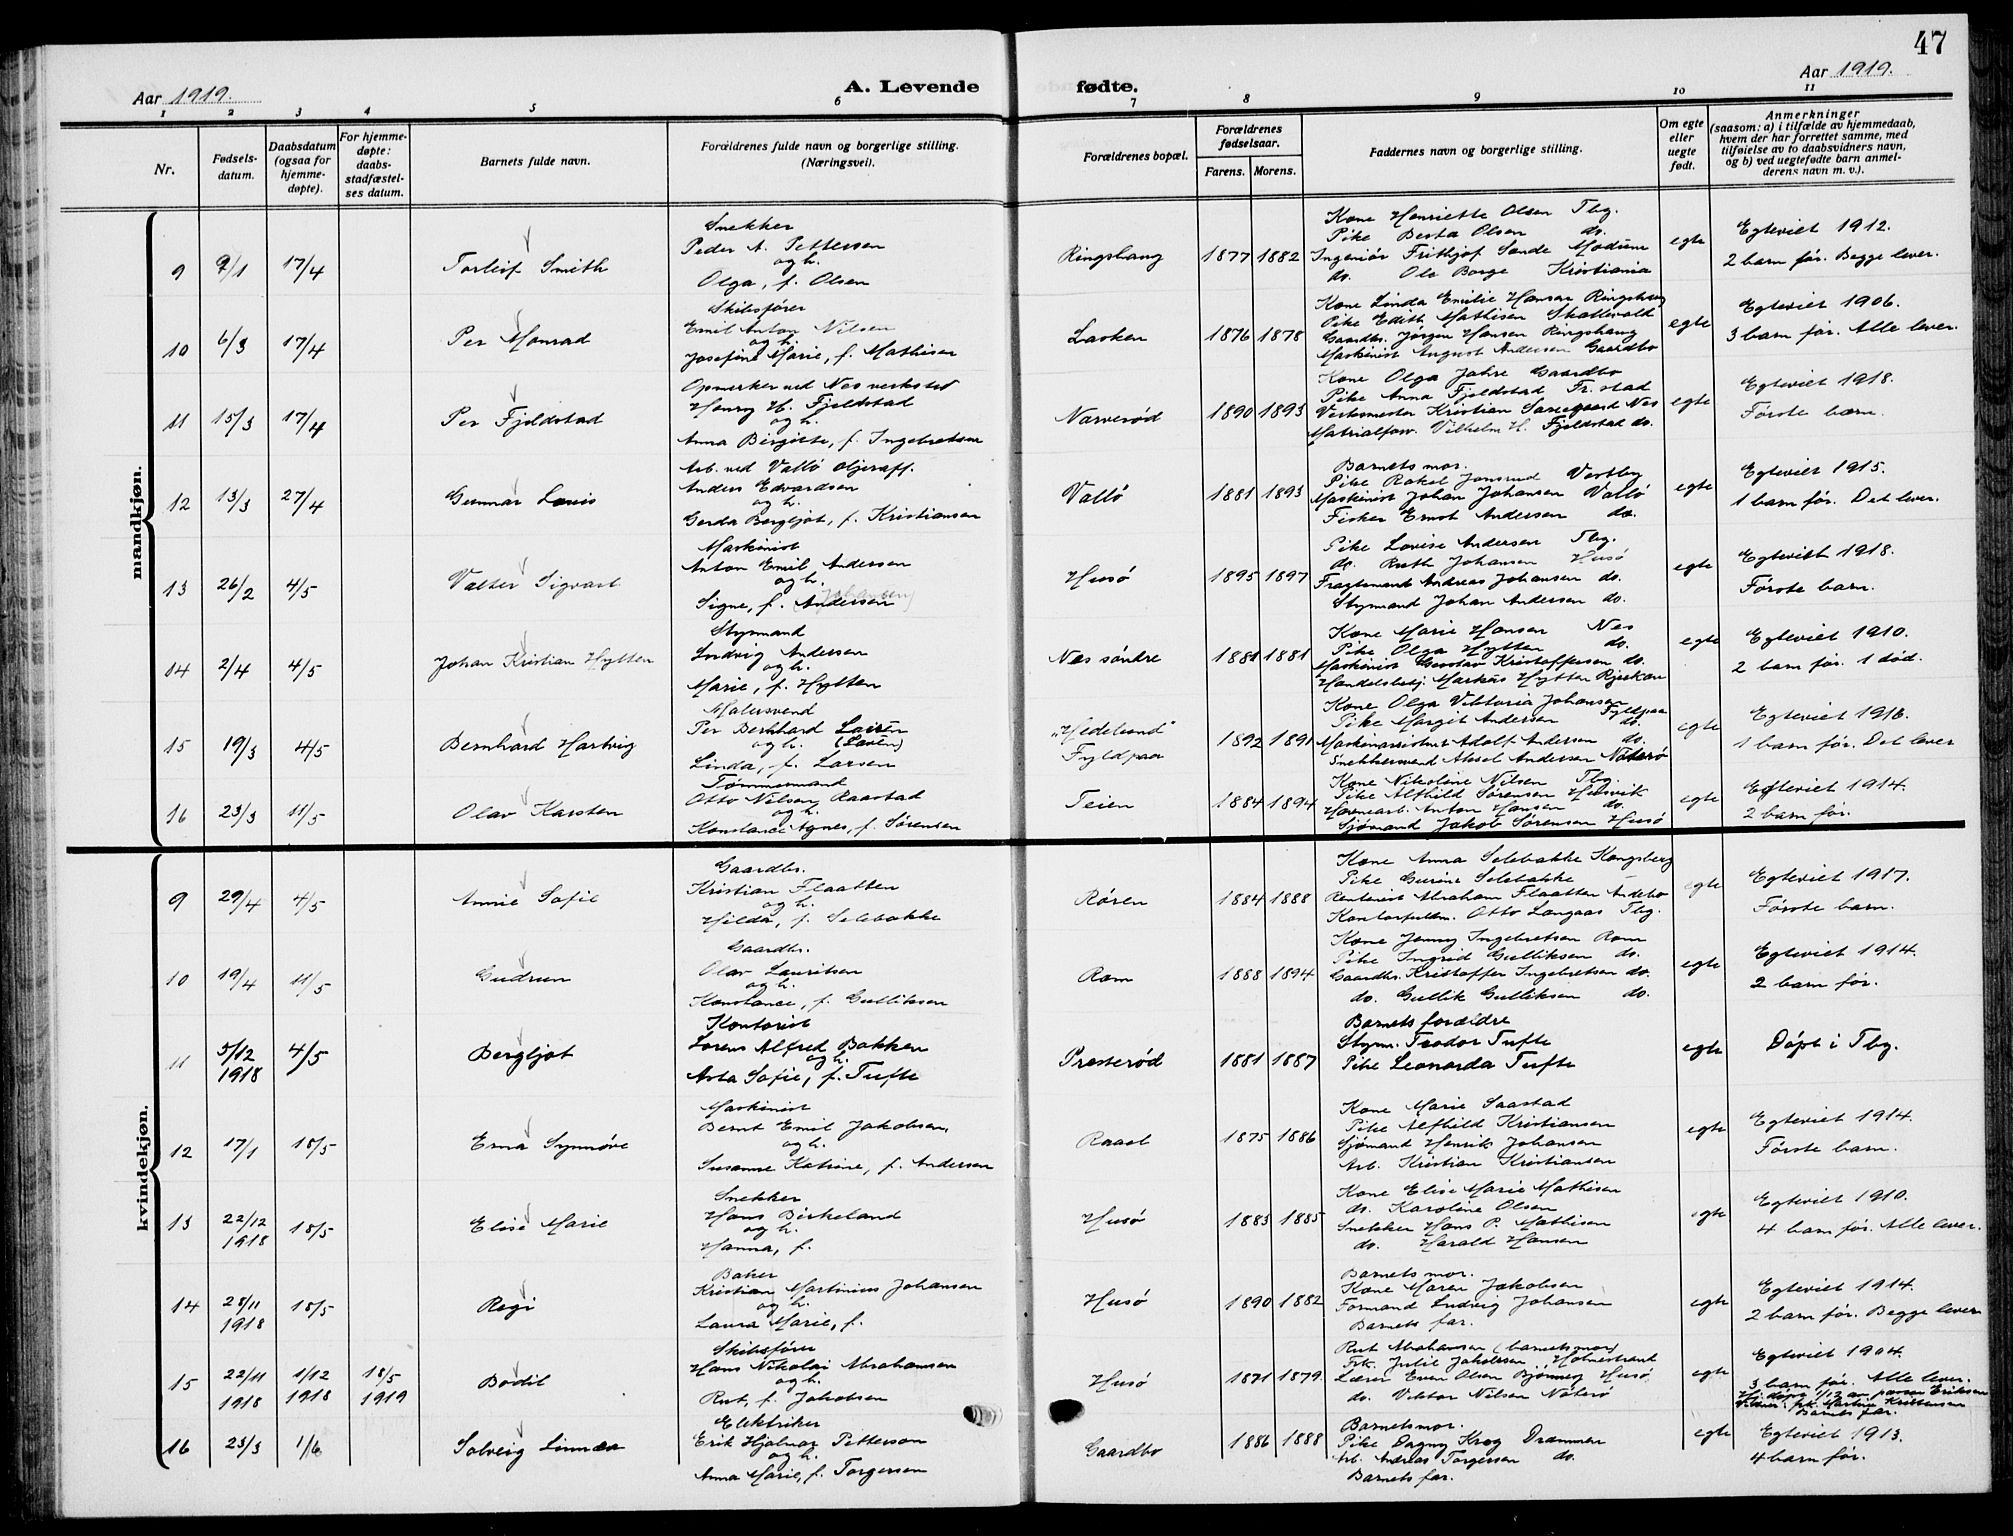 47
Aar 1919.
A. Levende
fødte.
Aar 1919.
1 2 3 4 5 6 7 8 9 10 11
Nr.
Fødsels-
datum.
Daabsdatum
(ogsaa for
hjemme-
døpte).
For hjemme-
døpte:
daabs-
stadfæstel-
ses datum.
Barnets fulde navn.
Forældrenes fulde navn og borgerlige stilling.
(Næringsvei).
Forældrenes bopæl.
Forældrenes
fødselsaar.
Farens. Morens.
Faddernes navn og borgerlige stilling.
Om egte
eller
uegte
født.
Anmerkninger
(saasom: a) i tilfælde av hjemmedaab,
hvem der har forrettet samme, med
tilføielse av to daabsvidners navn,
og b) ved uegtefødte barn anmel-
derens navn m. v.).
mandkjøn.
9 9/1 17/4 Torleif Smith
Snekker
Peder A. Pettersen
og h.
Olga, f. Olsen
Ringshaug 1877 1882
Kone Henriette Olsen Tbg.
Pike Berta Olsen do.
Ingeniør Frithjof Sande Modum
do. Ole Borge Kristiania
egte
Egteviet 1912.
2 barn før. Begge lever.
10 6/3 17/4 Per Monrad
Skibsfører
Emil Anton Nilsen
og h.
Josefine Marie, f. Mathisen
Lasken 1876 1878
Kone Linda Emilie Hansen Ringshaug
Pike Edith Mathisen Skallevold
Gaardbr. Jørgen Hansen Ringshaug
Maskinist August Andersen Gaardbo
egte
Egteviet 1906.
3 barn før. Alle lever.
11 15/3 17/4 Per Fjeldstad
Opmerker ved Nes verksted
Henry H. Fjeldstad
og h.
Anna Birgitte, f. Ingebretsen
Narverød 1890 1893
Kone Olga Jahre Gaardbo
Pike Anna Fjeldstad Fr.stad
Verksmester Kristian Nes
Matrialforv. Vilhelm H. Fjeldstad do.
egte
Egteviet 1918.
Første barn.
12 13/3 27/4 Gunnar Louis
Arb. ved Vallø oljeraff.
Anders Edvardsen
og h.
Gerda Bergljot, f. Kristiansen
Vallø 1881 1893
Barnets mor.
Pike Rakel Jonsrud Vestby
Maskinist Johan Johansen Vallø
Fisker Ernst Andersen do.
egte
Egteviet 1915.
1 barn før. Det lever.
13 26/2 4/5 Valter Sigvart
Maskinist
Anton Emil Andersen
og h. Johansen
Signe, f. Andersen
Husø 1895 1897
Pike Lovise Andersen Tbg.
do. Ruth Johansen Husø
Fragtemand Andreas Johansen do.
Styrmand Johan Andersen do.
egte
Egteviet 1918.
Første barn.
14 2/4 4/5 Johan Kristian Hytten
Styrmand
Ludvig Andersen
og h.
Marie, f. Hytten
Nes søndre 1881 1881
Kone Marie Hansen Nes
Pike Olga Hytten do.
Maskinist Gustav Kristoffersen do.
Handelsbetj. Markus Hytten Rjukan
egte
Egteviet 1910.
2 barn før. 1 død.
15 19/3 4/5 Bernhard Hartvig
Malersvend
Per Bernhard Lauren
og h. (Lauen)
Linda, f. Larsen
"Hedelund"
Fyldpaa
1892 1891
Kone Olga Viktoria Johansen Fyldpaa
Pike Margit Andersen do.
Maskinassistent Adolf Andersen do.
Snekkersvend Aksel Andersen Nøterø
egte
Egteviet 1916.
1 barn før. Det lever
16 23/3 11/5 Olav Karsten
Tømmermand
Otto Nilsen Raastad
og h.
Konstance Agnes, f. Sørensen
Teien 1884 1894
Kone Nikoline Nilsen Tbg.
Pike Alfhild Sørensen Husvik
Havnearb. Anton Hansen do.
Sjømand Jakob Sørensen Husø
egte
Egteviet 1914.
2 barn før.
kvindekjøn.
9 29/4 4/5 Annie Sofie
Gaardbr.
Kristian Flaatten
og h.
Hilda, f. Selebakke
Røren 1884 1888
Kone Anna Selebakke Kongsberg
Pike Gurine Selebakke
Rentenist Abraham Flaatten Andebo
Kontorfuldm. Otto Langaas Tbg.
egte
Egteviet 1917.
Første barn.
10 19/4 11/5 Gudrun
Gaardbr.
Olav Lauritsen
og h.
Konstance, f. Gulliksen
Rom 1888 1894
Kone Jenny Ingebretsen Rom
Pike Ingrid Gulliksen do.
Gaardbr. Kristoffer Ingebretsen do.
do. Gullik Gulliksen do.
egte
Egteviet 1914.
2 barn før.
11 5/12 1918 4/5 Bergljot
Kontorist
Lorens Alfred Bakken
og h.
Asta Sofie, f. Tufte
Presterød 1881 1887
Barnets forældre
Styrm. Teodor Tufte
Pike Leonarda Tufte
egte
Døpt i Tbg.
12 17/1 18/5 Erna Synnøve
Maskinist
Bernt Emil Jakobsen
og h.
Susanne Katrine, f. Andersen
Raael 1875 1886
Kone Marie Saastad
Pike Alfhild Kristiansen
Sjømand Henrik Johansen
Arb. Kristian Kristiansen
egte
Egteviet 1914.
Første barn.
13 22/12 1918 18/5 Elise Marie
Snekker
Hans Birkeland
og h.
Hanna, f.
Husø 1883 1885
Kone Elise Marie Mathisen
do. Karoline Olsen
Snekker Hans P. Mathisen
do. Harald Hansen
egte
Egteviet 1910.
4 barn før. Alle lever.
14 28/11 1918 18/5 Regi
Baker
Kristian Martinius Johansen
og h.
Laura Marie, f.
Husø 1890 1882
Barnets mor.
Kone Maren Jakobsen
Formand Ludvig Johansen
Barnets far.
egte
Egteviet 1914.
2 barn før. Begge lever
15 22/11 1918 1/12 1918 18/5 1919 Bodil
Skibsfører
Hans Nikolai Abrahamsen
og h.
Rut, f. Jakobsen
Husø 1871 1879.
Rut Abrahamsen (barnets mor)
Frk. Julie Jakobsen, Holmestrand
Lærer Even Olsen Bjønnes Husø
do. Viktor Nilsen Nøterø
egte
Egteviet 1904.
3 barn før. Alle lever.
Hj. døpt 1/12 av pastor Eriksen
Vidner: frk. Martine Kristensen
Barnets far.
16 23/3 1/6 Solveig Linnea
Elektriker
Erik Hjalmar Petterson
og h.
Anna Marie, f. Torgersen
Gaardbo 1886 1888
Barnets mor.
Pike Dagny Krog Drammen
Arb. Andreas Torgersen do.
Barnets far.
egte
Egteviet 1913.
4 barn før.